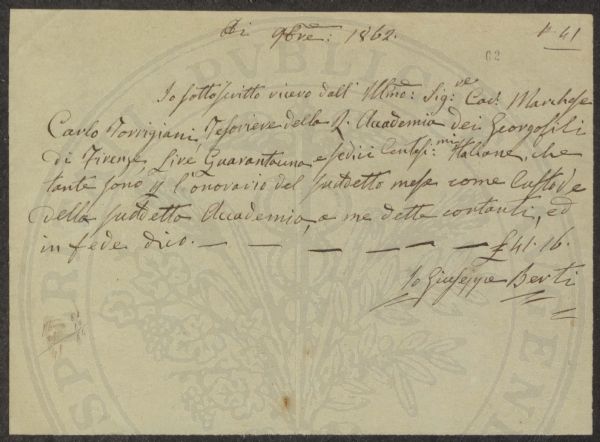 Di 9bre: 1862.
N 41
62
Io sottoscritto ricevo dall' Illmo: Sig:re Cav: Marchese
Carlo Torrigiani, Tesoriere della R. Accademia dei Georgofili
di Firenze Lire Quarantauna, e sedici Centesi:mi Italiane, che
tante sono p l'onorario del suddetto mese come Custode
della suddetta Accademia, a me dette contanti, ed
in fede dico. — — — — — — £ 41. 16.
Io Giuseppe Berti